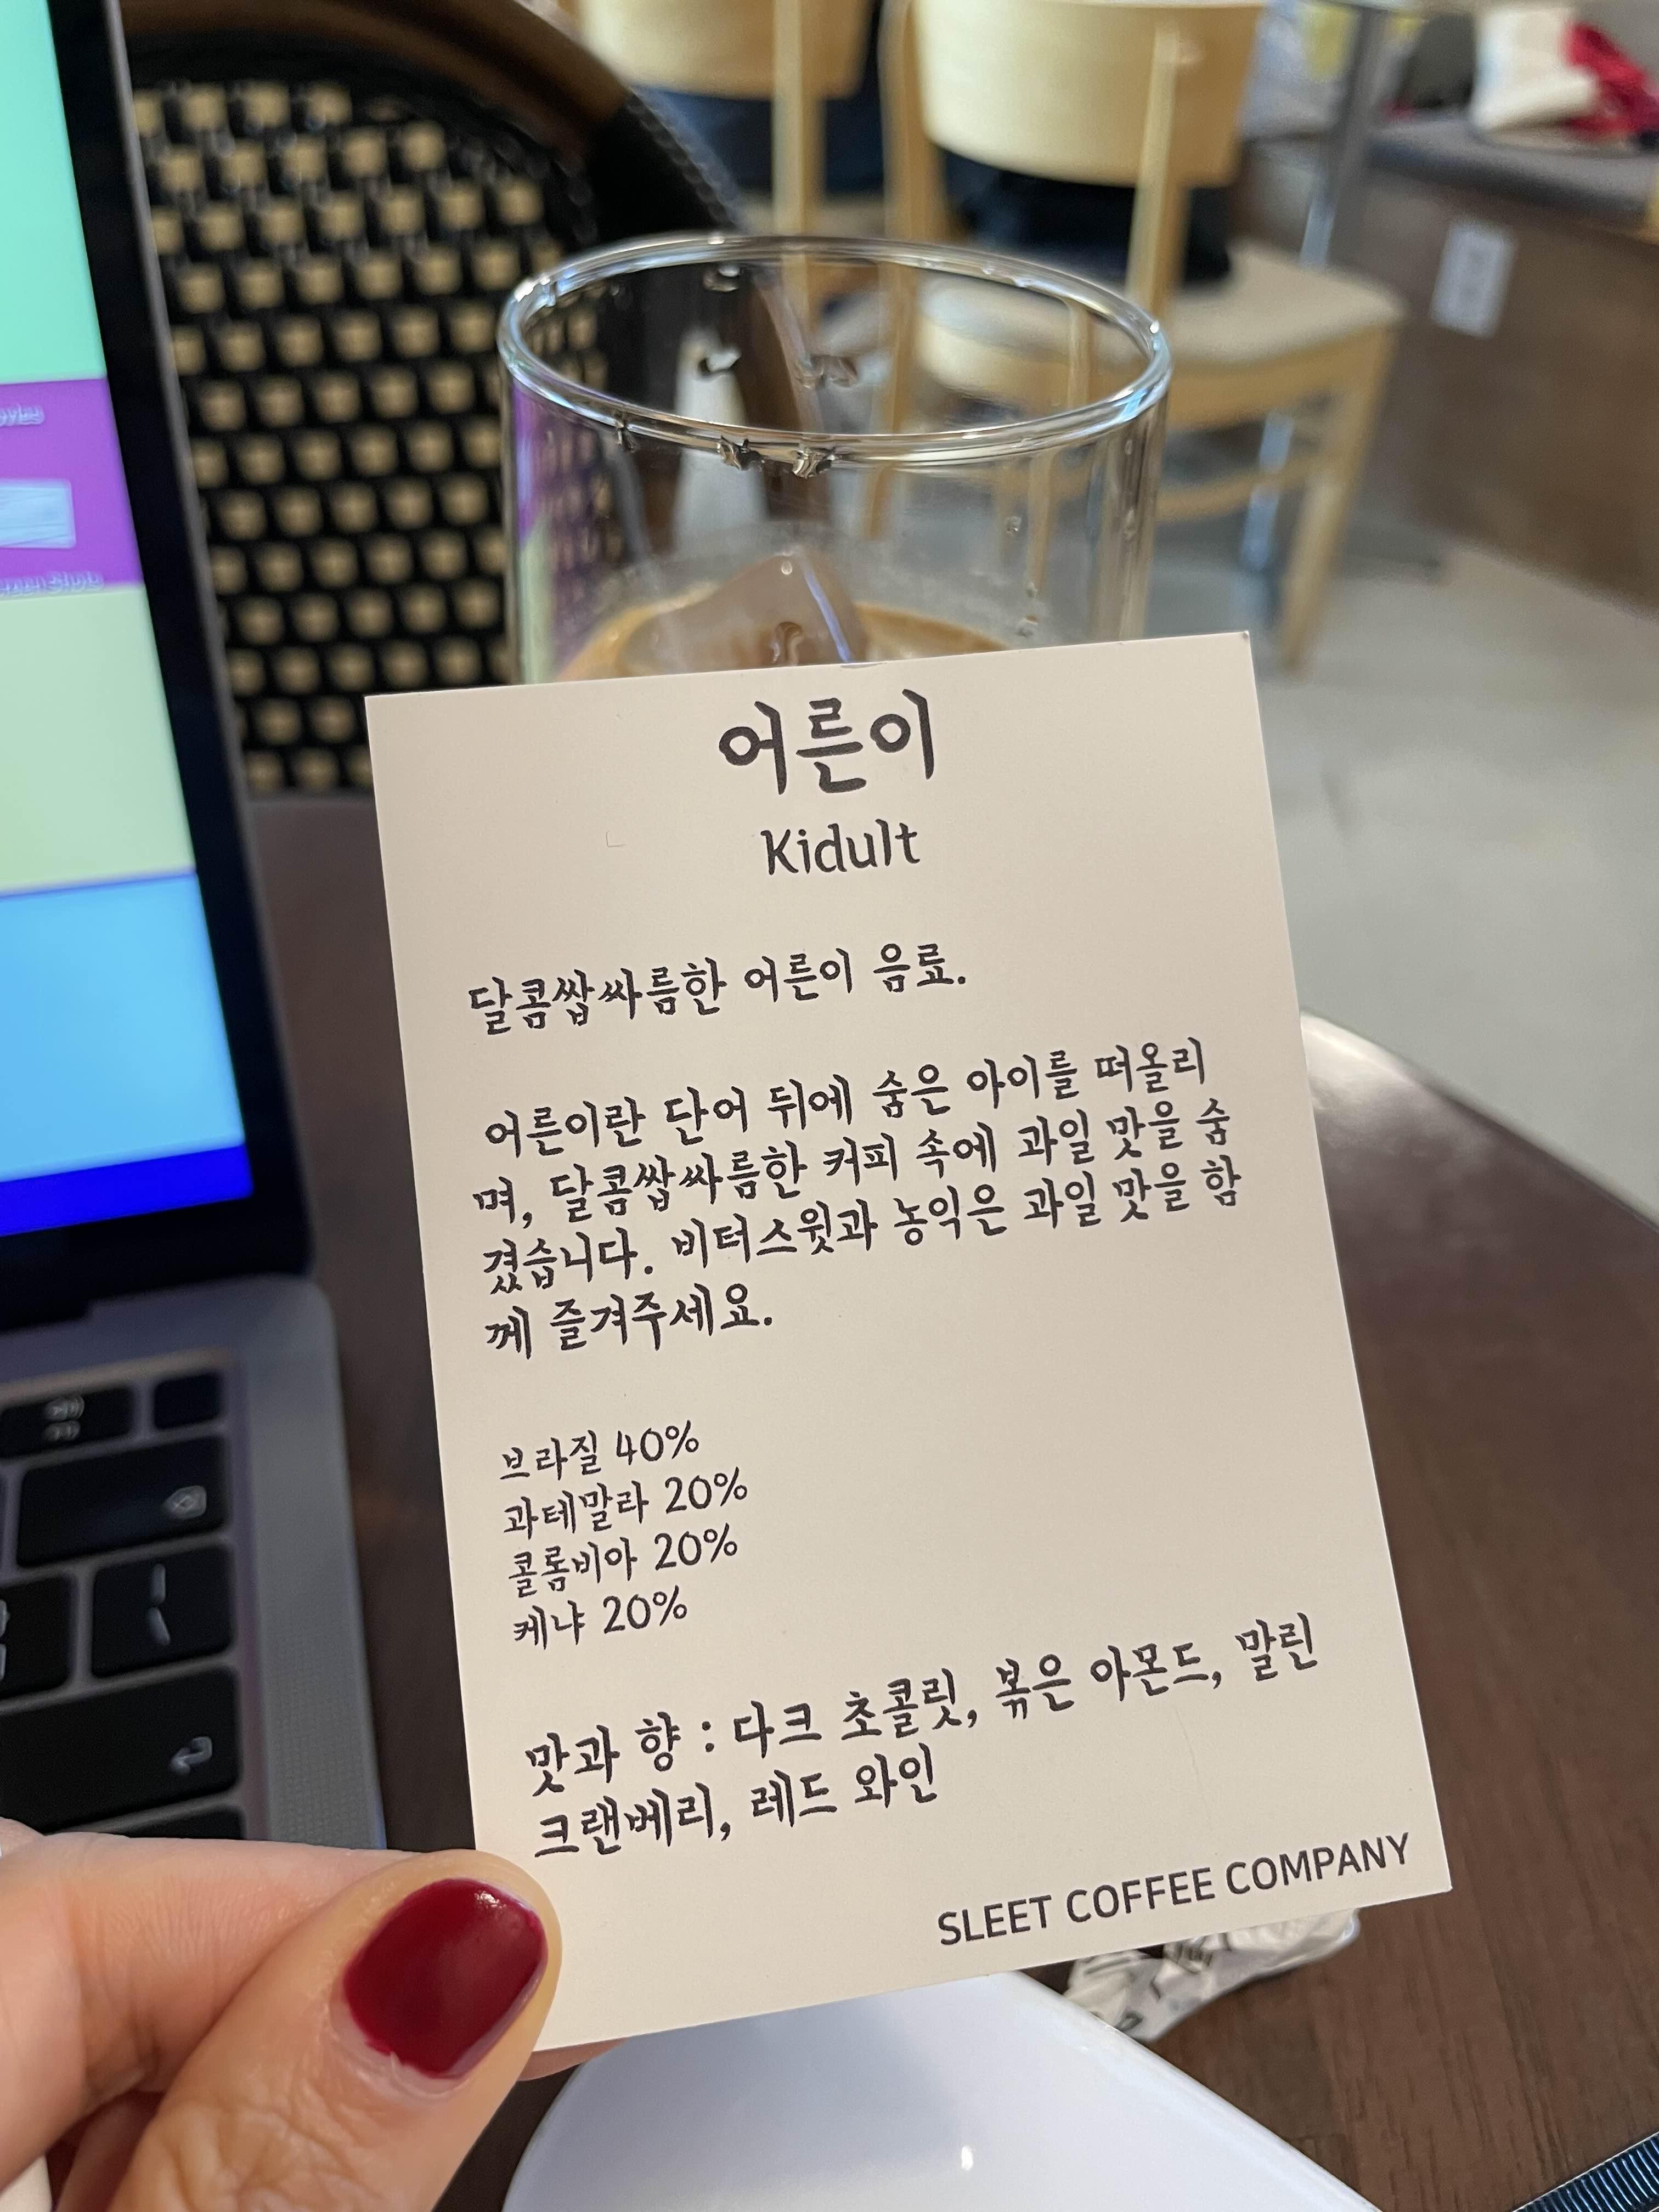 어른이
Kidult
달콤쌉싸름한 어른이 음료.
어른이란 단어 뒤에 숨은 아이를 떠올리
며, 달콤쌉싸름한 커피 속에 과일 맛을 숨
겼습니다. 비터스윗과 농익은 과일 맛을 함
께 즐겨주세요.
브라질 40%
과테말라 20%
콜롬비아 20%
케냐 20%
맛과 향 : 다크 초콜릿, 볶은 아몬드, 말린
크랜베리, 레드 와인
SLEET COFFEE COMPANY